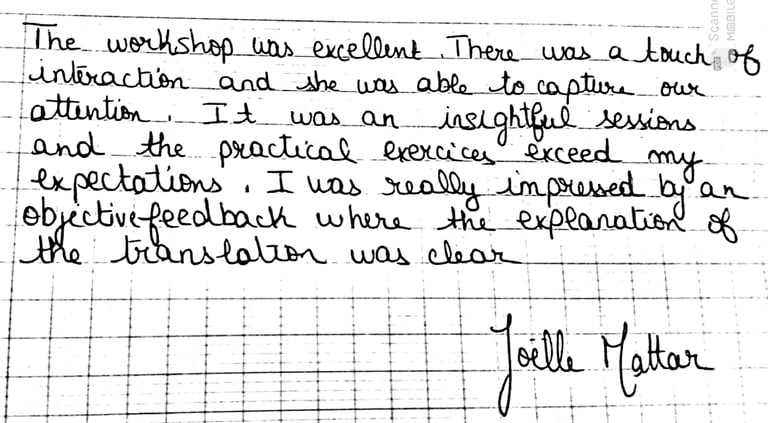 The workshop was excellent. There was a touch of
interaction and she was able to capture our
attention. It was an insightful sessions
and the practical exercices exceed my
expectations. I was really impressed by an
objective feedback where the explanation of
the translation was clear
Joëlle Mattar